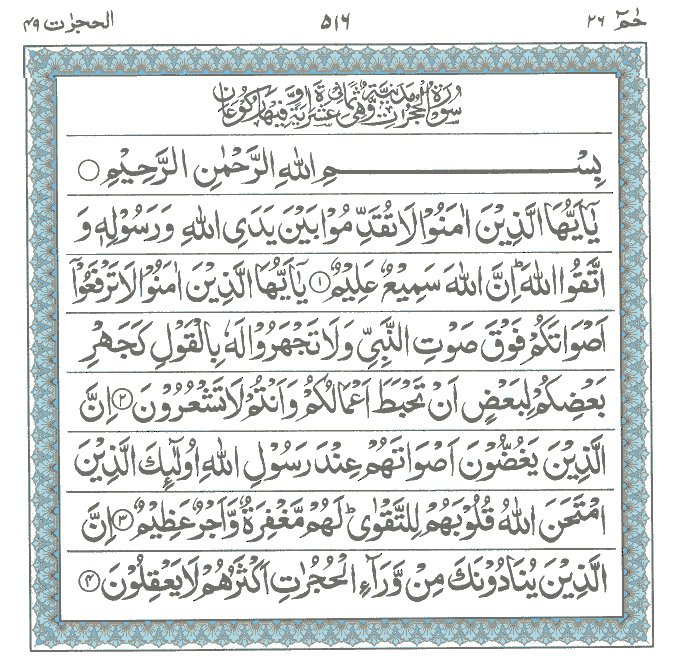 حٰمٓ ٢٦ ٥١٦ الحجرٰت ٤٩
سُوْرَةُ الْحُجُرٰتِ مَدَنِيَّةٌ وَّهِيَ ثَمَانِيْ عَشْرَةَ اٰيَةً وَّفِيْهَا رُكُوْعَانِ
بِسْمِ اللهِ الرَّحْمٰنِ الرَّحِيْمِ ○
يٰٓاَيُّهَا الَّذِيْنَ اٰمَنُوْا لَا تُقَدِّمُوْا بَيْنَ يَدَيِ اللهِ وَرَسُوْلِهٖ وَ
اتَّقُوا اللهَ ؕ اِنَّ اللهَ سَمِيْعٌ عَلِيْمٌ ١ يٰٓاَيُّهَا الَّذِيْنَ اٰمَنُوْا لَا تَرْفَعُوْٓا
اَصْوَاتَكُمْ فَوْقَ صَوْتِ النَّبِيِّ وَلَا تَجْهَرُوْا لَهٗ بِالْقَوْلِ كَجَهْرِ
بَعْضِكُمْ لِبَعْضٍ اَنْ تَحْبَطَ اَعْمَالُكُمْ وَاَنْتُمْ لَا تَشْعُرُوْنَ ٢ اِنَّ
الَّذِيْنَ يَغُضُّوْنَ اَصْوَاتَهُمْ عِنْدَ رَسُوْلِ اللهِ اُولٰٓئِكَ الَّذِيْنَ
امْتَحَنَ اللهُ قُلُوْبَهُمْ لِلتَّقْوٰى ؕ لَهُمْ مَّغْفِرَةٌ وَّاَجْرٌ عَظِيْمٌ ٣ اِنَّ
الَّذِيْنَ يُنَادُوْنَكَ مِنْ وَّرَآءِ الْحُجُرٰتِ اَكْثَرُهُمْ لَا يَعْقِلُوْنَ ٤